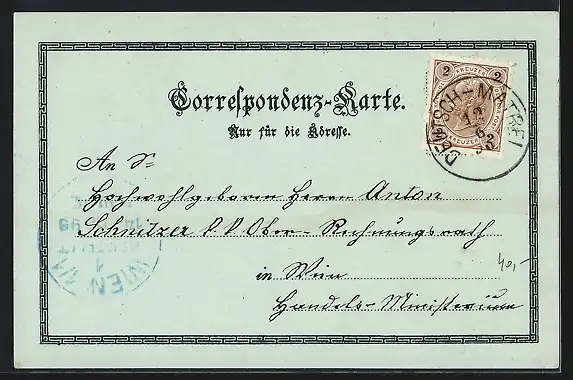 Correspondenz-Karte.
Nur für die Adresse.
2 KREUZER 2
2 2
DEUTSCH-MATREI
12
6
An Sr
Hochwohlgeboren Herrn Anton
Schnitzer k. k. Ober-Rechnungsrath
in Wien
Handels-Ministerium
40,-
WIEN 1/1
1
98
BESTELLT